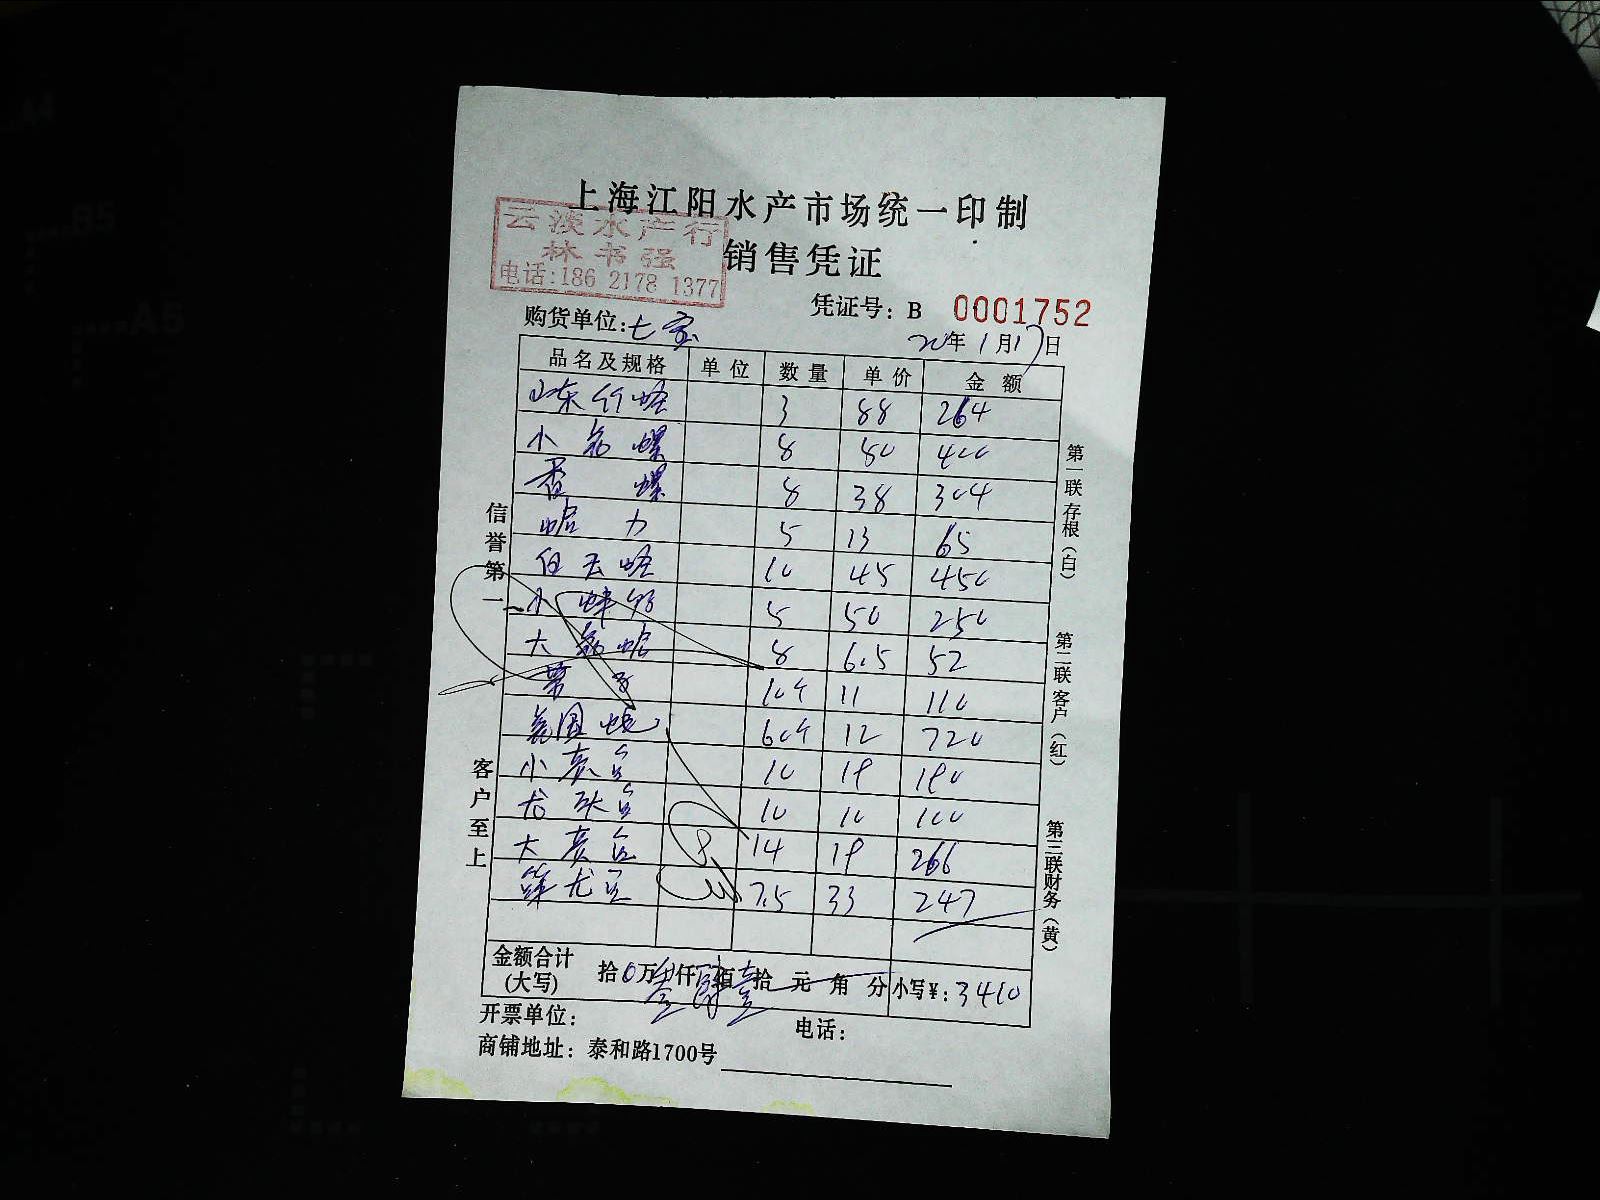 上海江阳水产市场统一印制
云淡水产行
林书强
电话:186 2178 1377
销售凭证
凭证号: B 0001752
购货单位: 七宝
20年 1月17日
品名及规格 单位 数量 单价 金额
山东竹蛏 3 88 264
小 螺 8 50 400
香螺 8 38 304
蛤 5 13 65
白玉蛏 10 45 450
小 5 50 250
大 蛤 8 6.5 52
10斤 11 110
美国 60斤 12 720
小 10 19 190
10 10 100
大 14 19 266
7.5 33 247
金额合计
(大写) 拾0万叁仟肆佰壹拾 元 角 分 小写¥: 3410
开票单位: 电话:
商铺地址: 泰和路1700号
信誉第一
客户至上
第一联存根(白)
第二联客户(红)
第三联财务(黄)